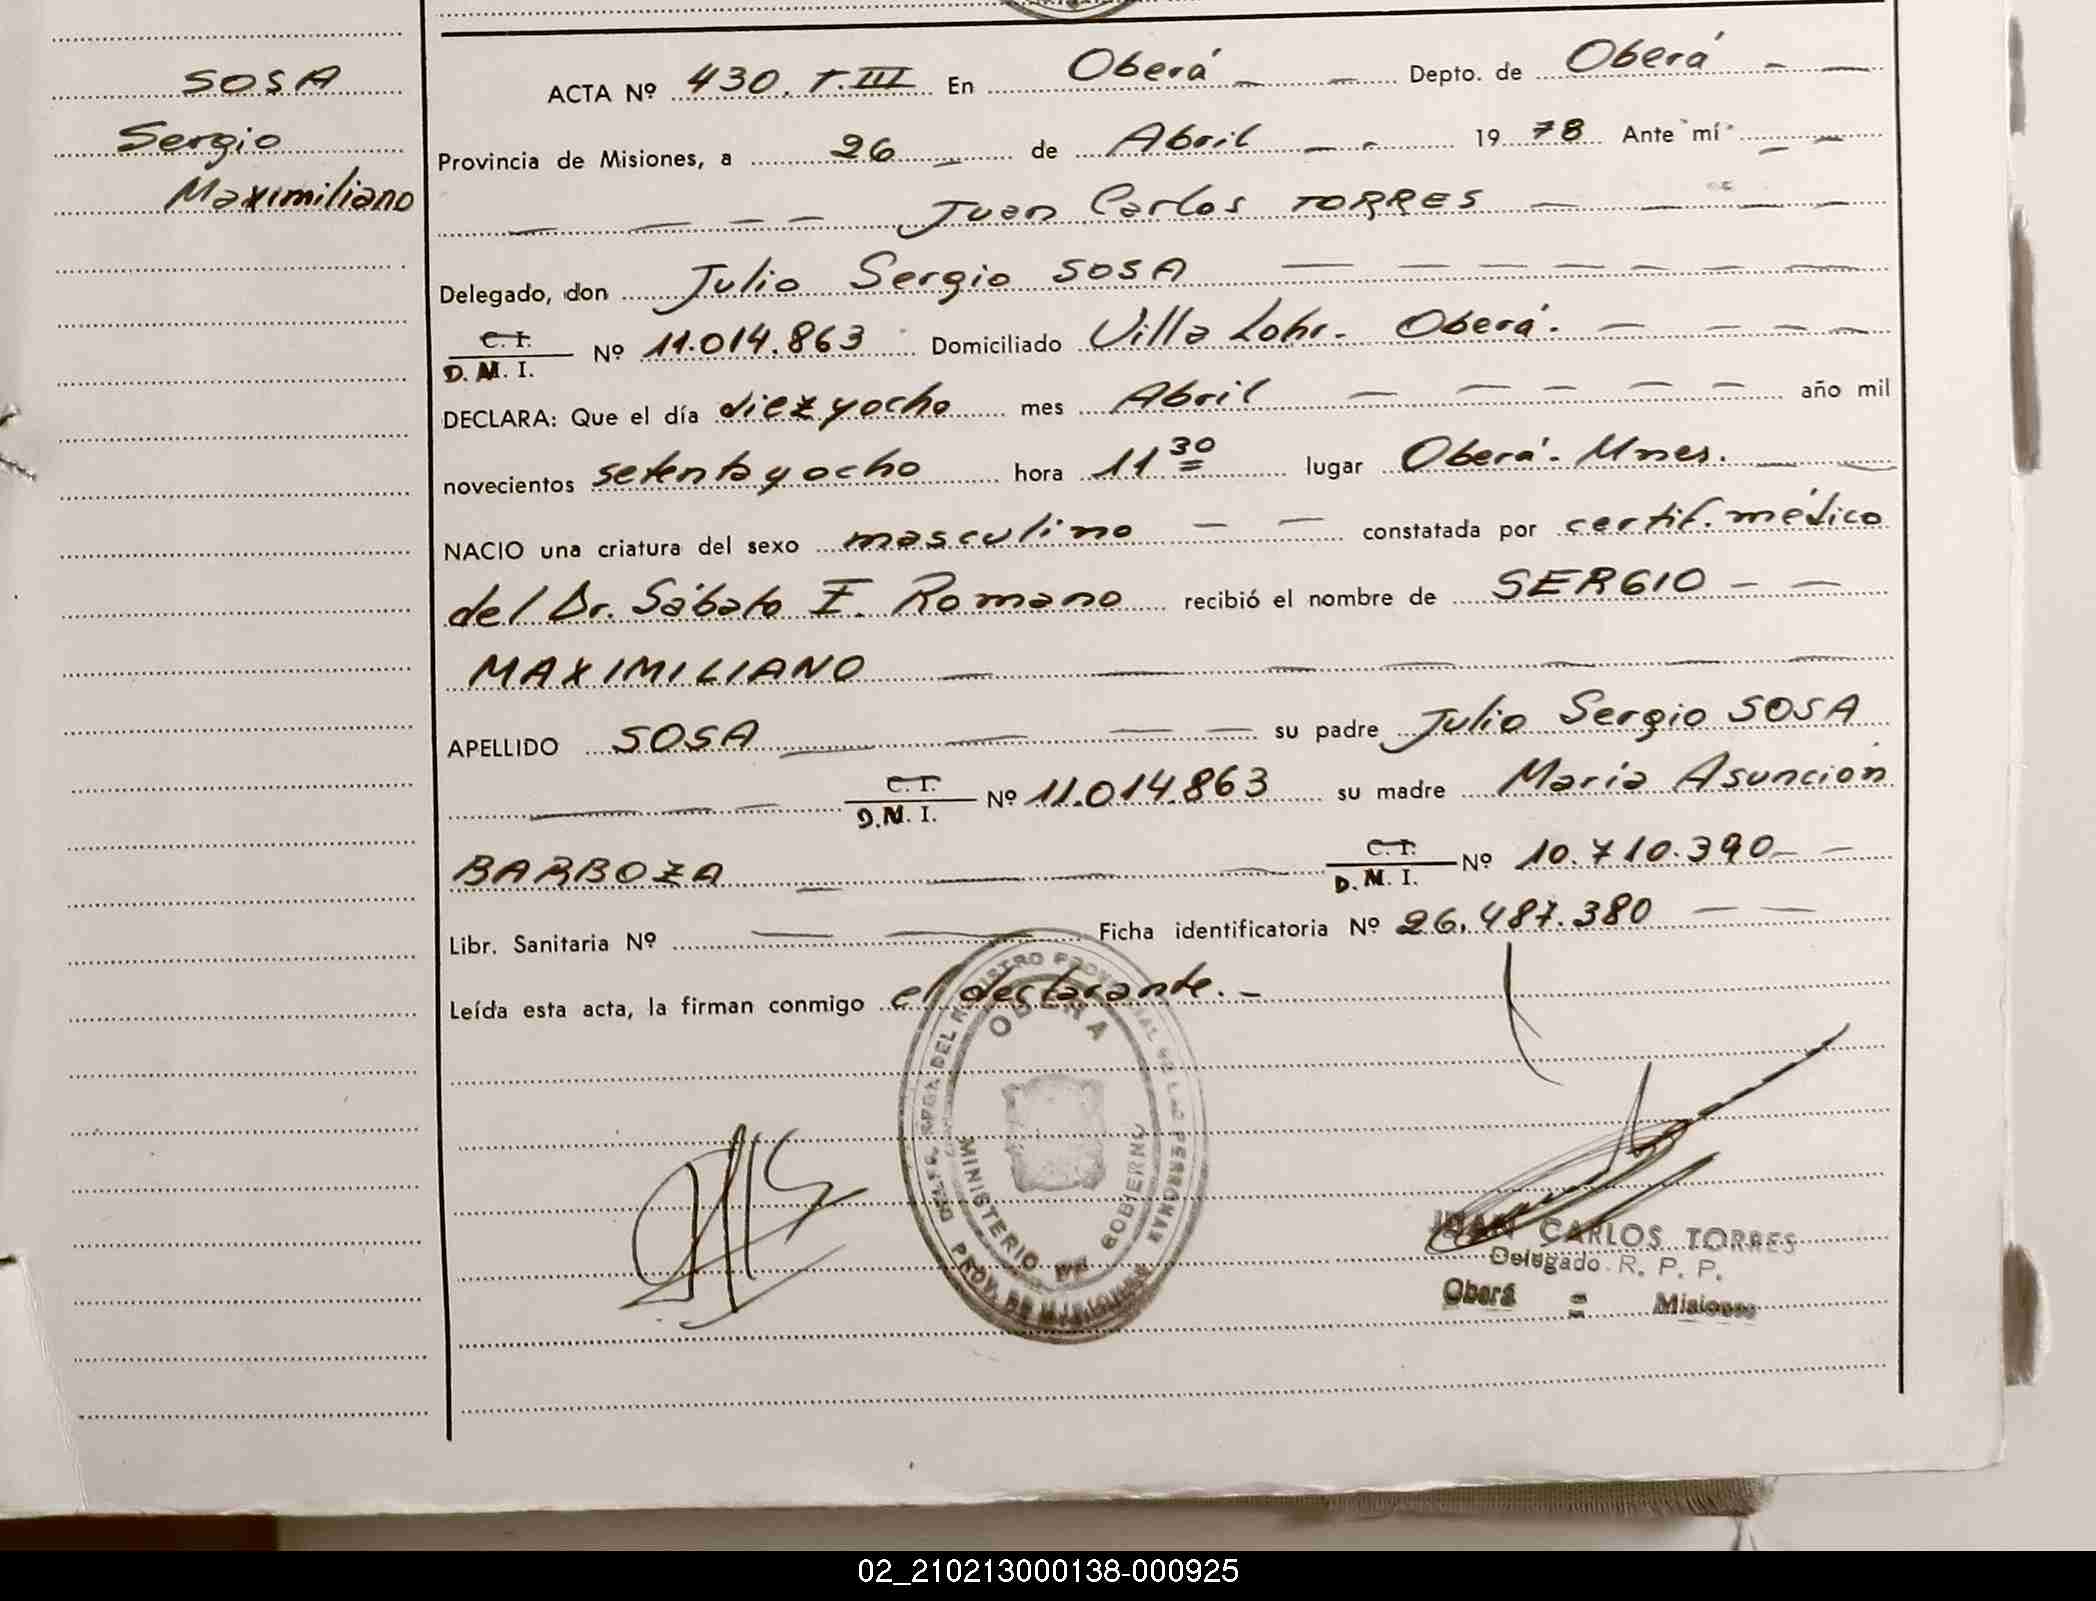 SOSA
Sergio
Maximiliano
ACTA Nº 430. T.III En Oberá Depto. de Oberá
Provincia de Misiones, a 26 de Abril 1978 Ante mí
Juan Carlos TORRES
Delegado, don Julio Sergio SOSA
C.I.
D. M. I. Nº 11.014.863 Domiciliado Villa Lohr. Oberá.
DECLARA: Que el día diez y ocho mes Abril año mil
novecientos setenta y ocho hora 11 30 lugar Oberá. Mnes.
NACIO una criatura del sexo masculino constatada por certif. médico
del Dr. Sábato F. Romano recibió el nombre de SERGIO
MAXIMILIANO
APELLIDO SOSA su padre Julio Sergio SOSA
C.I.
D.M.I. Nº 11.014.863 su madre María Asunción
BARBOZA C.I.
D. M. I. Nº 10.710.390
Libr. Sanitaria Nº Ficha identificatoria Nº 26.487.380
Leída esta acta, la firman conmigo el declarante.-
OBERA
MINISTERIO DE GOBIERNO
PROV. DE MISIONES
JUAN CARLOS TORRES
Delegado R. P. P.
Oberá = Misiones
02_210213000138-000925